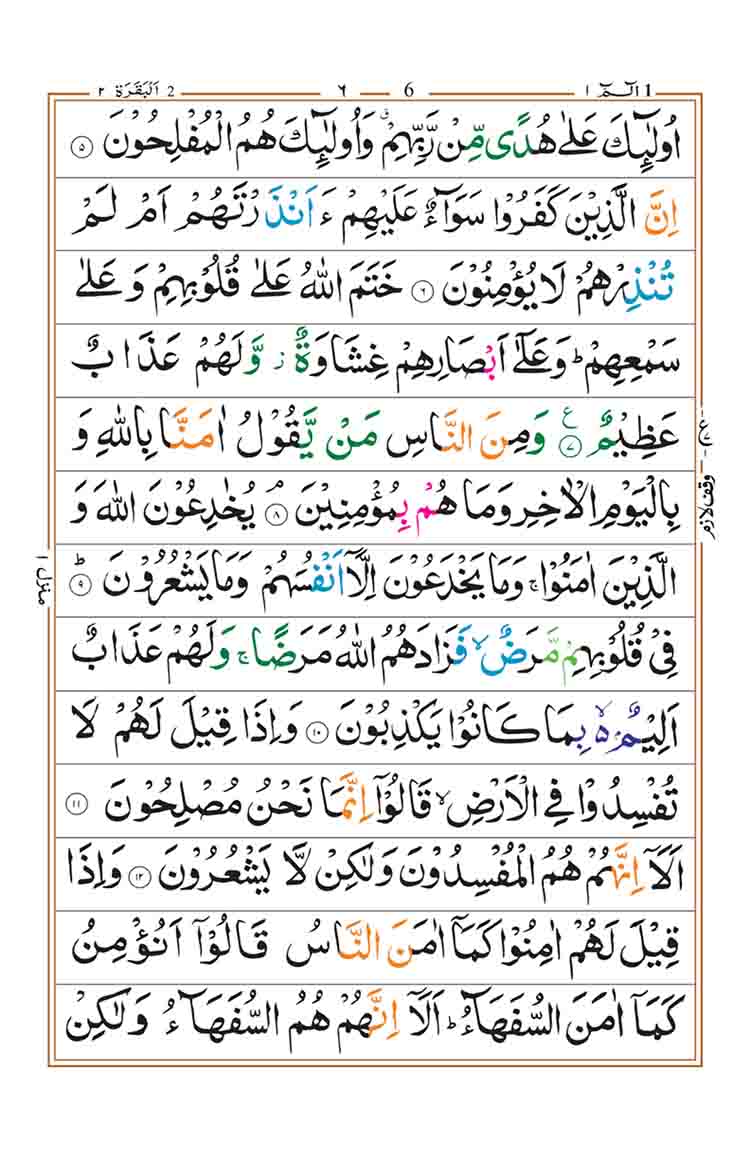 1 الٓـمّٓ ١ 6 ٦ 2 اَلْبَقَرَة ٢
اُولٰٓئِكَ عَلٰى هُدًى مِّنْ رَّبِّهِمْ ۗ وَاُولٰٓئِكَ هُمُ الْمُفْلِحُوْنَ ۝٥
اِنَّ الَّذِيْنَ كَفَرُوْا سَوَآءٌ عَلَيْهِمْ ءَ اَنْذَرْتَهُمْ اَمْ لَمْ
تُنْذِرْهُمْ لَا يُؤْمِنُوْنَ ۝٦ خَتَمَ اللّٰهُ عَلٰى قُلُوْبِهِمْ وَ عَلٰى
سَمْعِهِمْ ؕ وَ عَلٰٓى اَبْصَارِهِمْ غِشَاوَةٌ ز وَّ لَهُمْ عَذَابٌ
عَظِيْمٌ ۝٧ ع وَ مِنَ النَّاسِ مَنْ يَّقُوْلُ اٰمَنَّا بِاللّٰهِ وَ
بِالْيَوْمِ الْاٰخِرِ وَ مَا هُمْ بِمُؤْمِنِيْنَ ۝٨ۘ يُخٰدِعُوْنَ اللّٰهَ وَ
الَّذِيْنَ اٰمَنُوْا ۚ وَ مَا يَخْدَعُوْنَ اِلَّآ اَنْفُسَهُمْ وَ مَا يَشْعُرُوْنَ ۝٩ؕ
فِيْ قُلُوْبِهِمْ مَّرَضٌ ۙ فَزَادَهُمُ اللّٰهُ مَرَضًا ۚ وَ لَهُمْ عَذَابٌ
اَلِيْمٌ ۢ ۙ بِمَا كَانُوْا يَكْذِبُوْنَ ۝١٠ وَ اِذَا قِيْلَ لَهُمْ لَا
تُفْسِدُوْا فِي الْاَرْضِ ۙ قَالُوْٓا اِنَّمَا نَحْنُ مُصْلِحُوْنَ ۝١١
اَلَآ اِنَّهُمْ هُمُ الْمُفْسِدُوْنَ وَ لٰكِنْ لَّا يَشْعُرُوْنَ ۝١٢ وَ اِذَا
قِيْلَ لَهُمْ اٰمِنُوْا كَمَآ اٰمَنَ النَّاسُ قَالُوْٓا اَنُؤْمِنُ
كَمَآ اٰمَنَ السُّفَهَآءُ ؕ اَلَآ اِنَّهُمْ هُمُ السُّفَهَآءُ وَ لٰكِنْ
وقف لازم
منزل ١